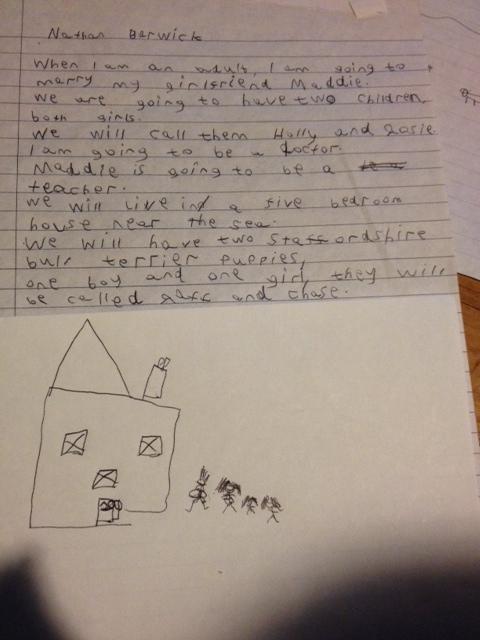 Nathan Berwick
When I am an adult, I am going to
marry my girlfriend Maddie.
We are going to have two children,
both girls.
We will call them Holly and Rosie
I am going to be a doctor.
Maddie is going to be a
teacher.
We will live in a five bedroom
house near the sea.
We will have two Staffordshire
bull terrier puppies,
one boy and one girl, they will
be called and chase.